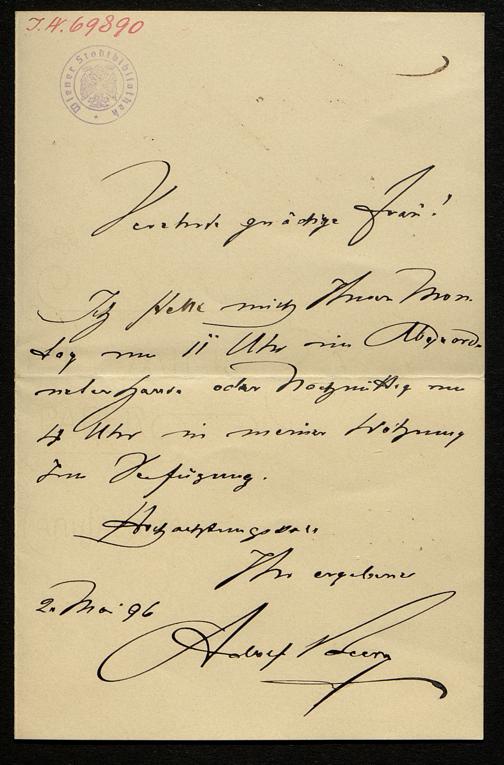 I.N. 69890
Wiener Stadtbibliothek
Verehrte gnädige Frau!
Ich stelle mich Ihnen Mon-
tag um 11 Uhr im Abgeord-
netenhause oder Nachmittag um
4 Uhr in meiner Wohnung
zur Verfügung.
Hochachtungsvoll
Ihr ergebener
2. Mai 96
Adolf